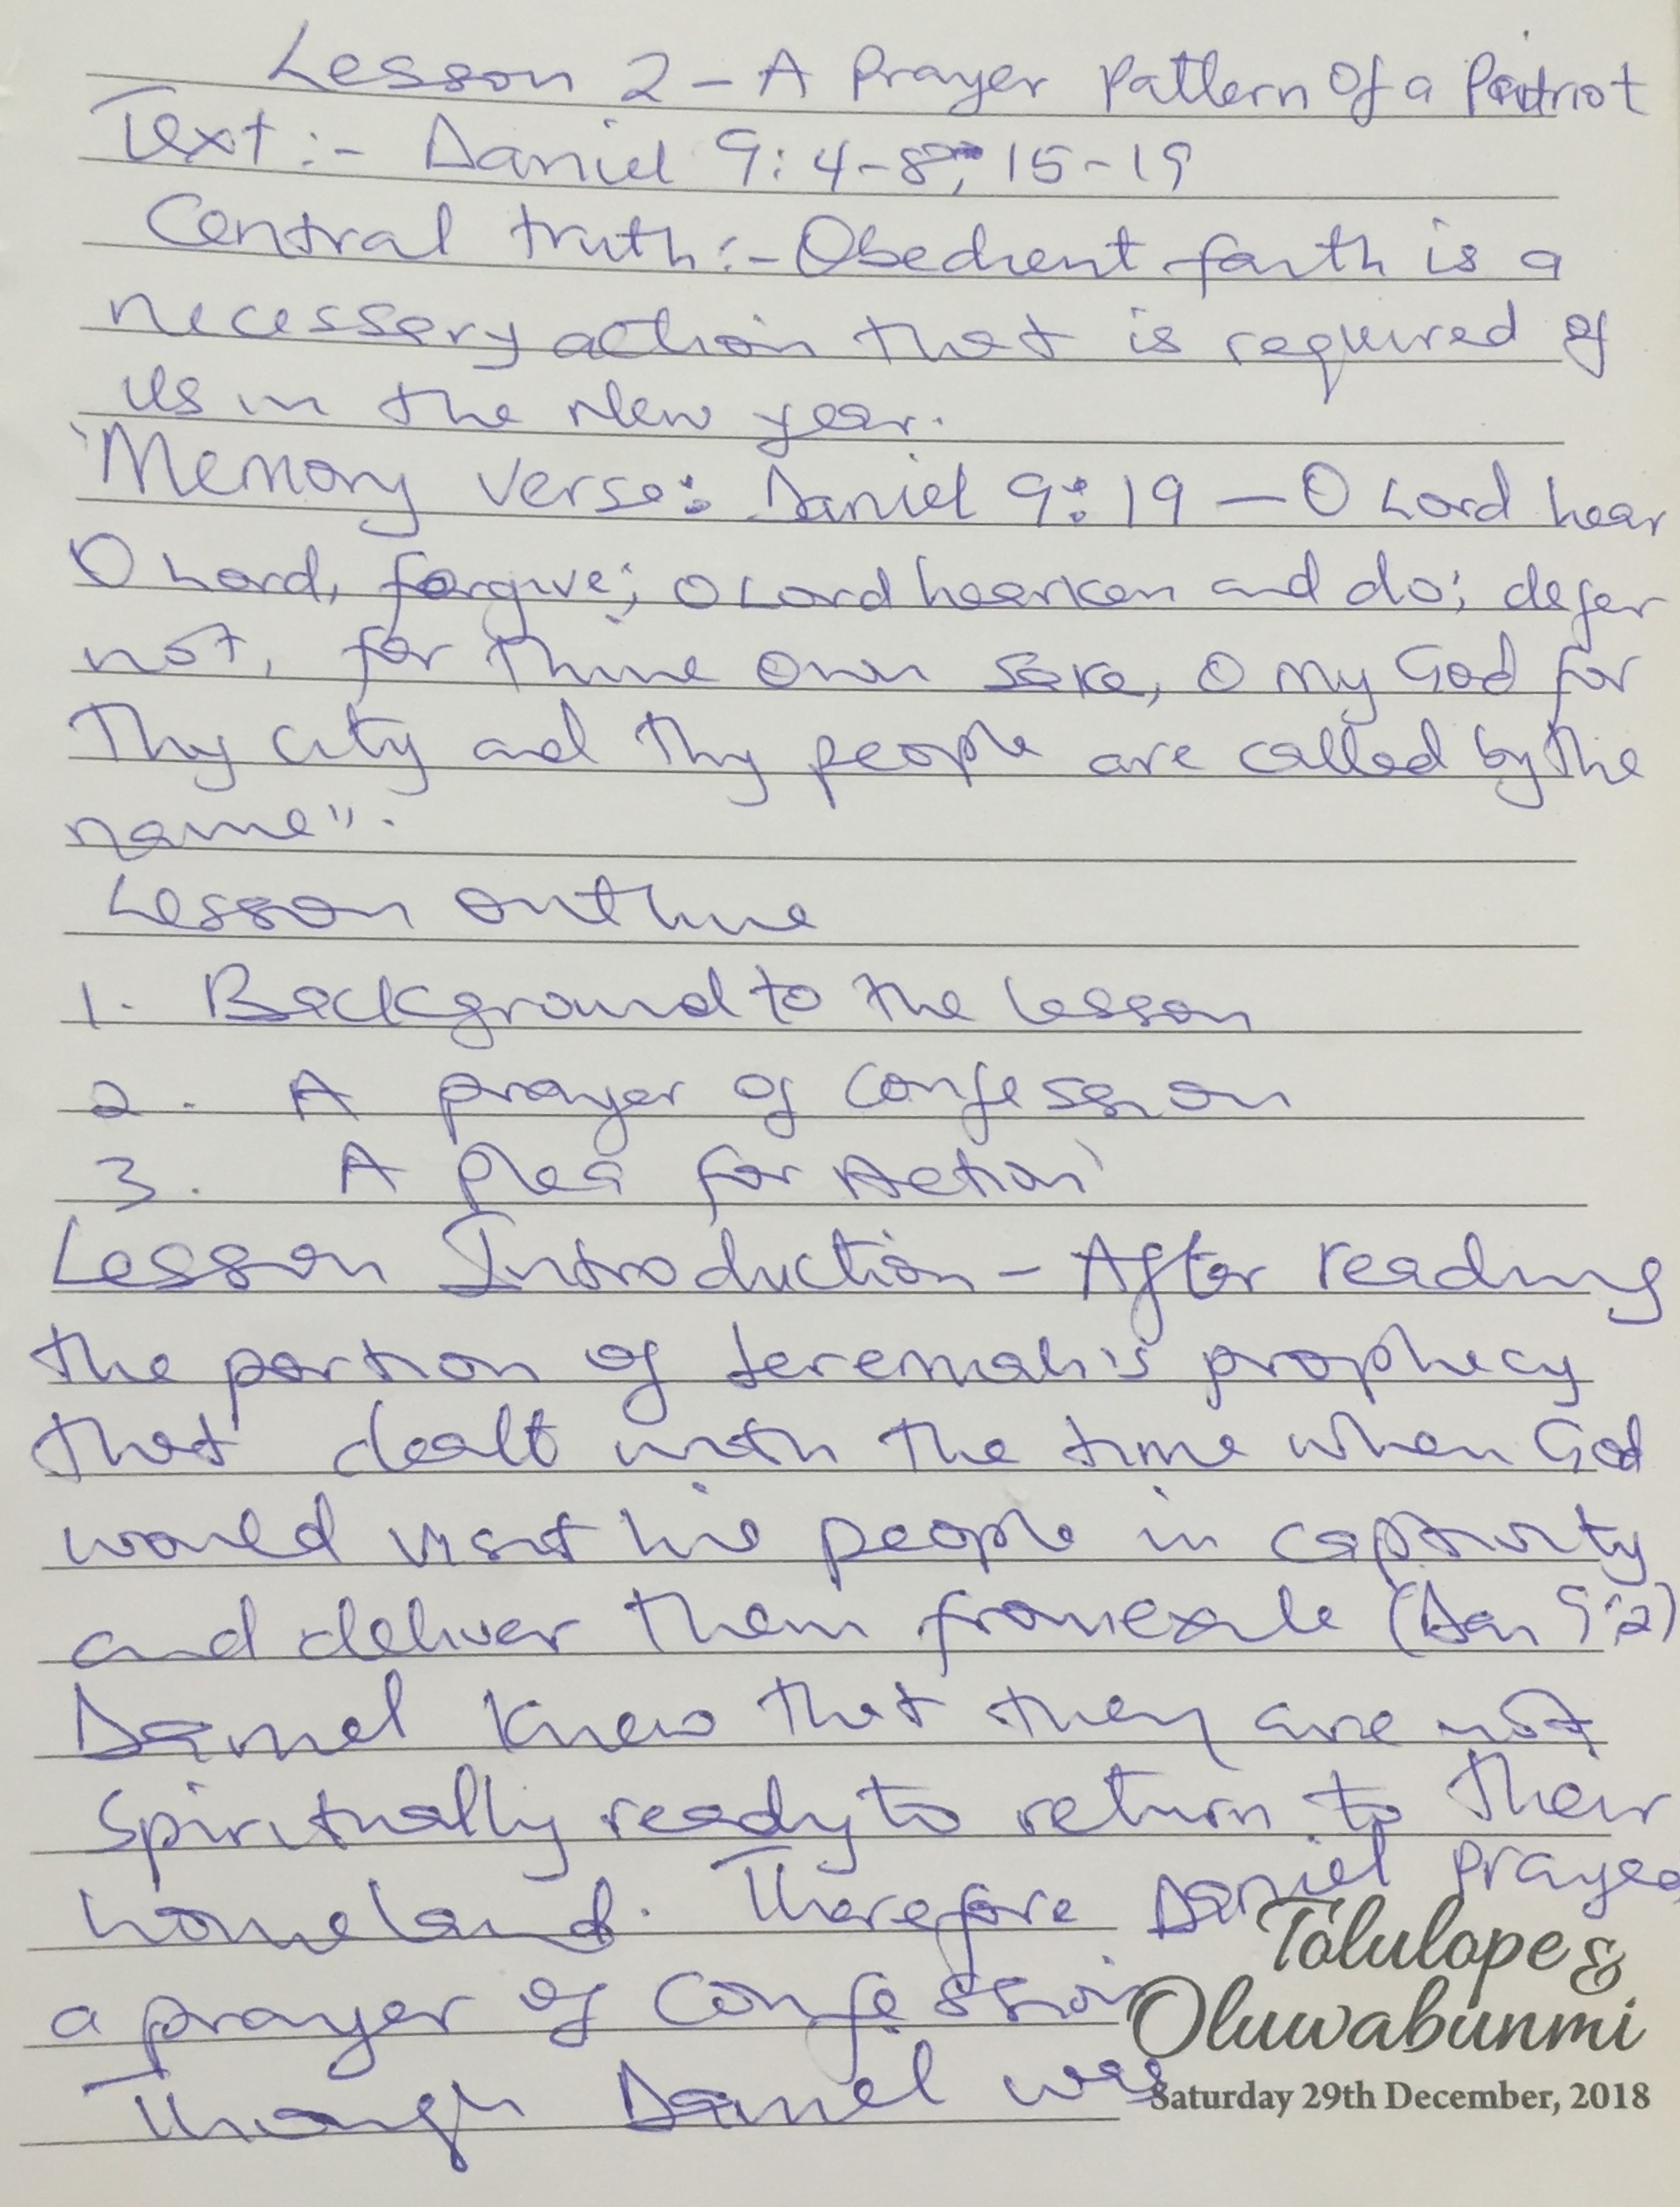 Lesson 2 - A Prayer Pattern Of a Patriot
Text:- Daniel 9: 4-8; 15-19
Central truth:- Obedient faith is a
necessary action that is required of
us in the New year.
"Memory verse: Daniel 9:19 — O Lord hear
O Lord, forgive; O Lord hearken and do; defer
not, for thine own sake, O my God for
Thy city and thy people are called by the
name".
Lesson outline
1. Background to the lesson
2. A prayer of confession
3. A plea for Action
Lesson Introduction - After reading
the portion of Jeremiah's prophecy
that dealt with the time when God
would visit his people in captivity
and deliver them from exile (Dan 9:2)
Daniel knew that they are not
spiritually ready to return to their
homeland. Therefore Daniel prayed
a prayer of confession
Though Daniel was
Tolulope &
Oluwabunmi
Saturday 29th December, 2018